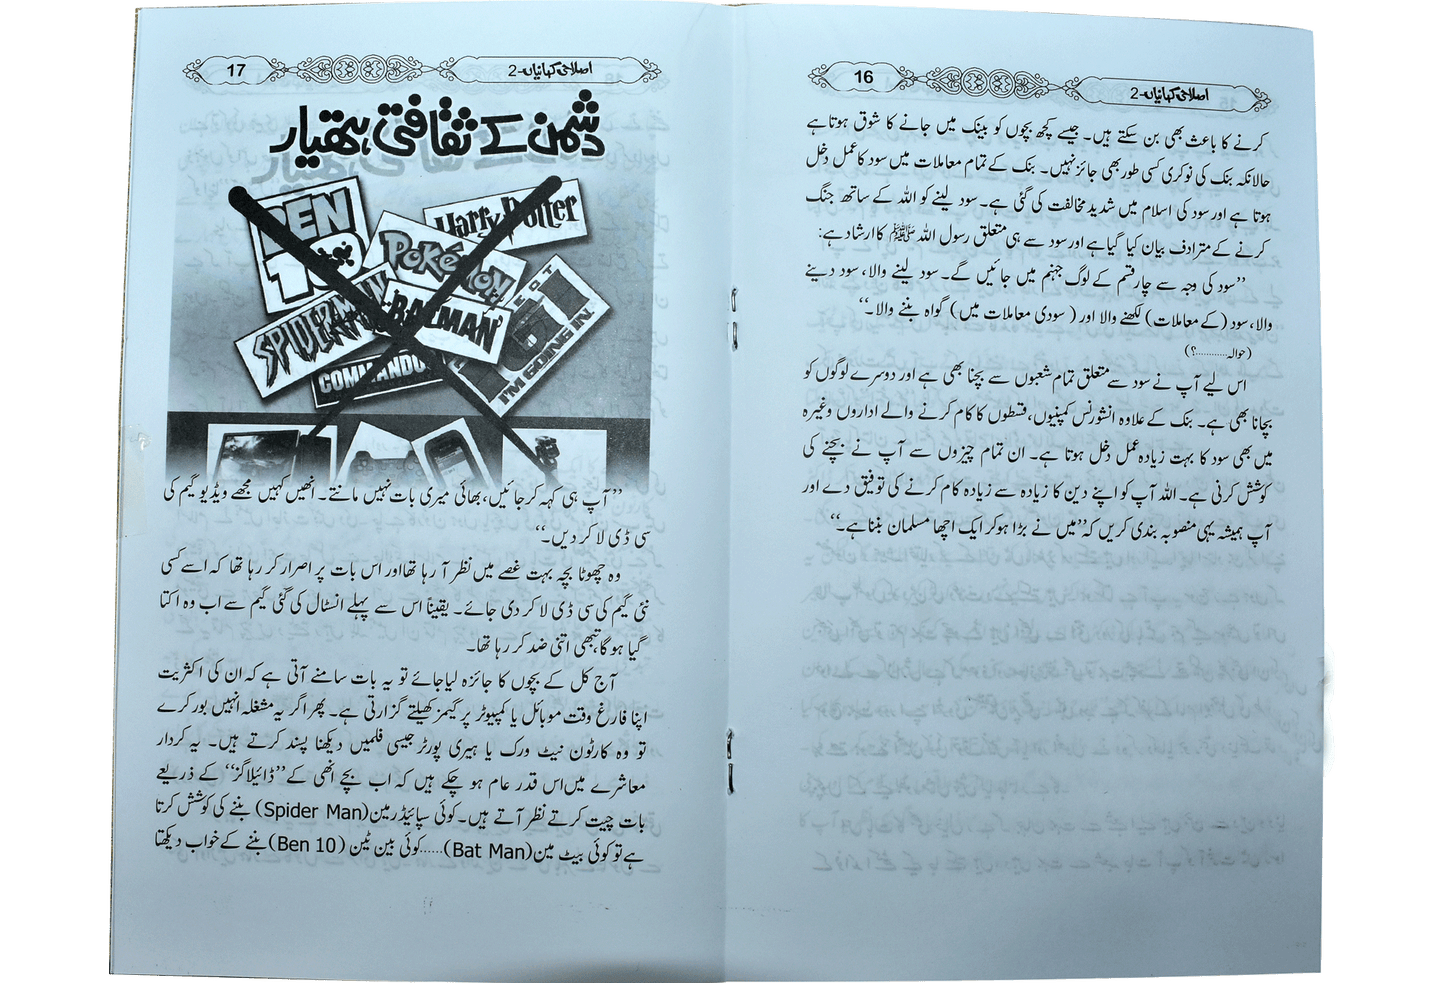 16
اصلاحی کہانیاں-2
کرنے کا باعث بھی بن سکتے ہیں۔ جیسے کچھ بچوں کو بینک میں جانے کا شوق ہوتا ہے
حالانکہ بنک کی نوکری کسی طور بھی جائز نہیں۔ بنک کے تمام معاملات میں سود کا عمل دخل
ہوتا ہے اور سود کی اسلام میں شدید مخالفت کی گئی ہے۔ سود لینے کو اللہ کے ساتھ جنگ
کرنے کے مترادف بیان کیا گیا ہے اور سود سے ہی متعلق رسول اللہ ﷺ کا ارشاد ہے:
’’سود کی وجہ سے چار قسم کے لوگ جہنم میں جائیں گے۔ سود لینے والا، سود دینے
والا، سود (کے معاملات) لکھنے والا اور (سودی معاملات میں) گواہ بننے والا۔‘‘
(حوالہ............؟)
اس لیے آپ نے سود سے متعلق تمام شعبوں سے بچنا بھی ہے اور دوسرے لوگوں کو
بچانا بھی ہے۔ بنک کے علاوہ انشورنس کمپنیوں، قسطوں کا کام کرنے والے اداروں وغیرہ
میں بھی سود کا بہت زیادہ عمل دخل ہوتا ہے۔ ان تمام چیزوں سے آپ نے بچنے کی
کوشش کرنی ہے۔ اللہ آپ کو اپنے دین کا زیادہ سے زیادہ کام کرنے کی توفیق دے اور
آپ ہمیشہ یہی منصوبہ بندی کریں کہ ’’میں نے بڑا ہو کر ایک اچھا مسلمان بننا ہے۔‘‘
17
اصلاحی کہانیاں-2
دشمن کے ثقافتی ہتھیار
BEN 10
Harry Potter
Pokémon
SPIDERMAN
BATMAN
COMMANDOS
I'M GOING IN.
’’آپ ہی کہہ کر جائیں، بھائی میری بات نہیں مانتے۔ انھیں کہیں مجھے ویڈیو گیم کی
سی ڈی لا کر دیں۔‘‘
وہ چھوٹا بچہ بہت غصے میں نظر آ رہا تھا اور اس بات پر اصرار کر رہا تھا کہ اسے کسی
نئی گیم کی سی ڈی لا کر دی جائے۔ یقیناً اس سے پہلے انسٹال کی گئی گیم سے اب وہ اکتا
گیا ہو گا، تبھی اتنی ضد کر رہا تھا۔
آج کل کے بچوں کا جائزہ لیا جائے تو یہ بات سامنے آتی ہے کہ ان کی اکثریت
اپنا فارغ وقت موبائل یا کمپیوٹر پر گیمز کھیلتے گزارتی ہے۔ پھر اگر یہ مشغلہ انہیں بور کرے
تو وہ کارٹون نیٹ ورک یا ہیری پورٹر جیسی فلمیں دیکھنا پسند کرتے ہیں۔ یہ کردار
معاشرے میں اس قدر عام ہو چکے ہیں کہ اب بچے انھی کے ’’ڈائیلاگز‘‘ کے ذریعے
بات چیت کرتے نظر آتے ہیں۔ کوئی سپائیڈر مین (Spider Man) بننے کی کوشش کرتا
ہے تو کوئی بیٹ مین (Bat Man)...... کوئی بین ٹین (Ben 10) بننے کے خواب دیکھتا